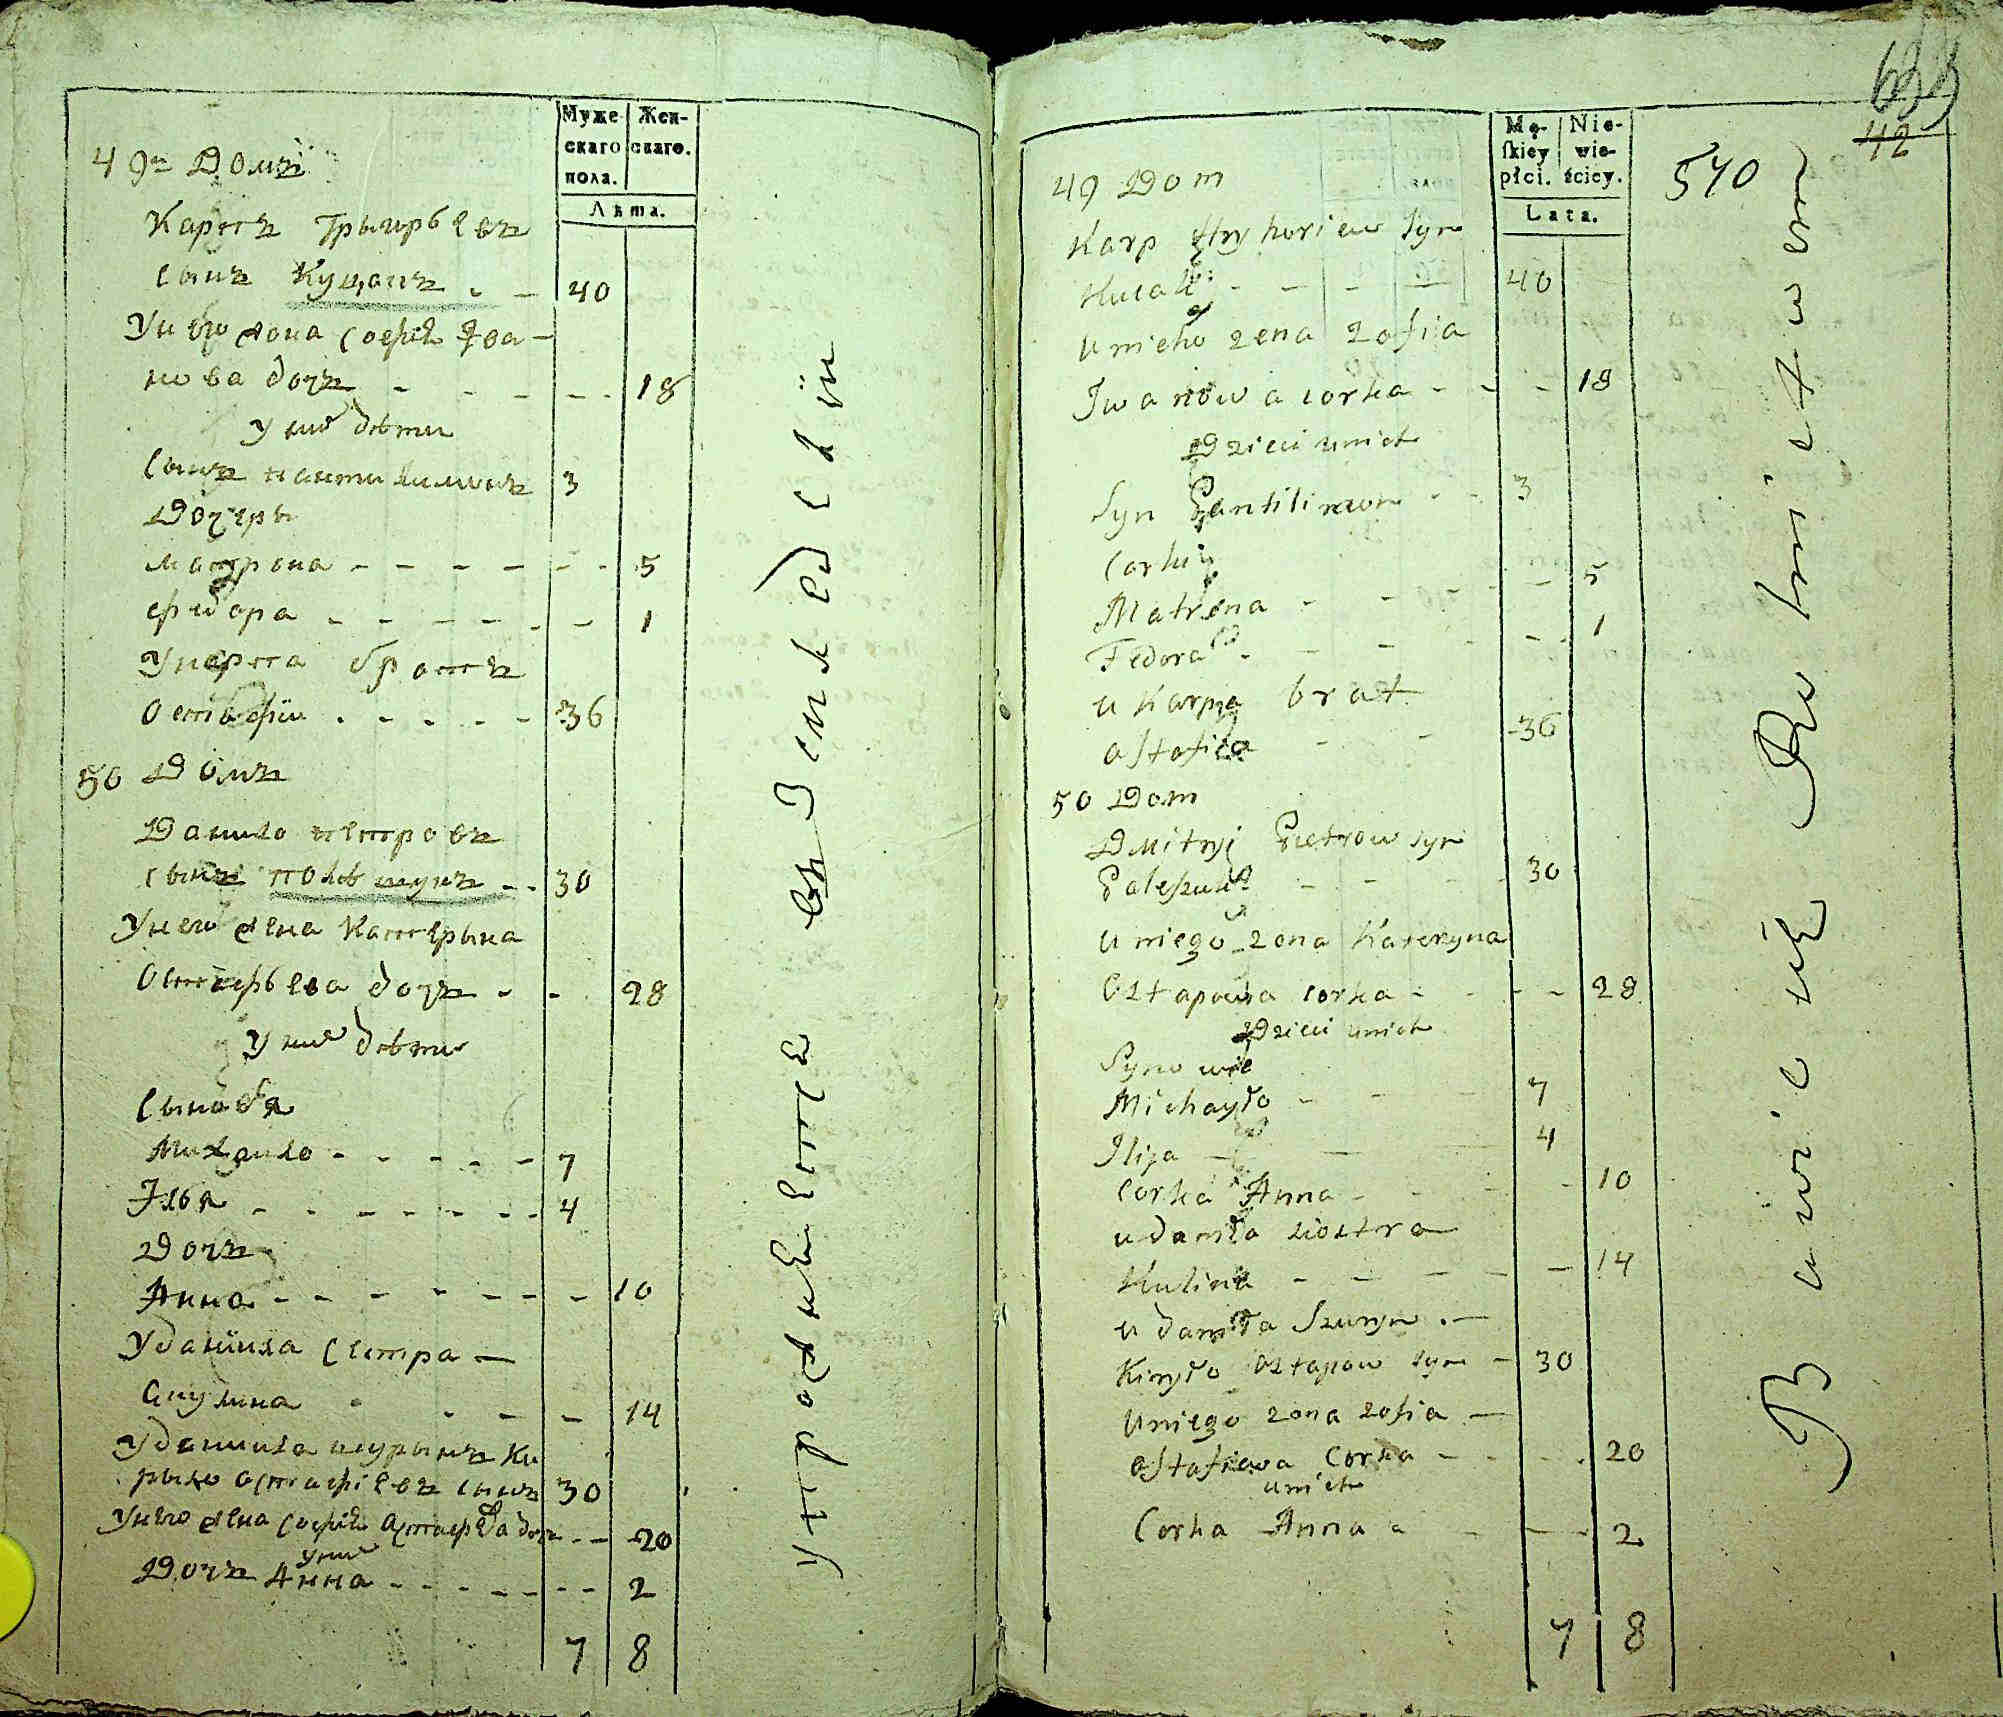 Муже-
скаго
пола.
Жен-
скаго.
Лѣта.
49й Домъ
Карпъ Грыгорьевъ
сынъ Куцакъ 40
У него жона Софія Ива-
нова дочъ 18
У нихъ дѣти
Сынъ Пантилимонъ 3
Дочери
Матрона 5
Фидора 1
У Карпа братъ
Остафій 36
50 Домъ
Данило Петровъ
сынъ Полѣшукъ 30
У него жена Катерына
Остафьева дочъ 28
У нихъ дѣти
Сыновья
Михайло 7
Илья 4
Дочъ
Анна 10
У Данила сестра
Акулина 14
У Данила шурынъ Ки
рыло Остафіевъ сынъ 30
У него жена Софія Астафьева дочъ 20
у них
Дочъ Анна 2
7 8
упражняются въ Земледелій
639
42
540
Mę-
ſkiey
płci.
Nie-
wie-
ściey.
Lata.
49 Dom
Karp Hryhoriew Syn
Kucak 40
U nieho zena Zofiia
Jwanowa corka 18
Dzieci unich
Syn Pantilimon 3
Corki
Matrena 5
Fedora 1
u Karpa brat
Astafiea 36
50 Dom
Dmitryj Pietrow syn
Paleszuk 30
U niego zona Kateryna
Ostapowa corka 28
Dzieci unich
Synowie
Michayło 7
Ilija 4
Corka Anna 10
u daniła siostra
Kulina 14
u daniła Szuryn
Kiryło Ostapow syn 30
Uniego zona zofia
Astafiewa Corka 20
unich
Corka Anna 2
7 8
Bawic się Rolnictwem